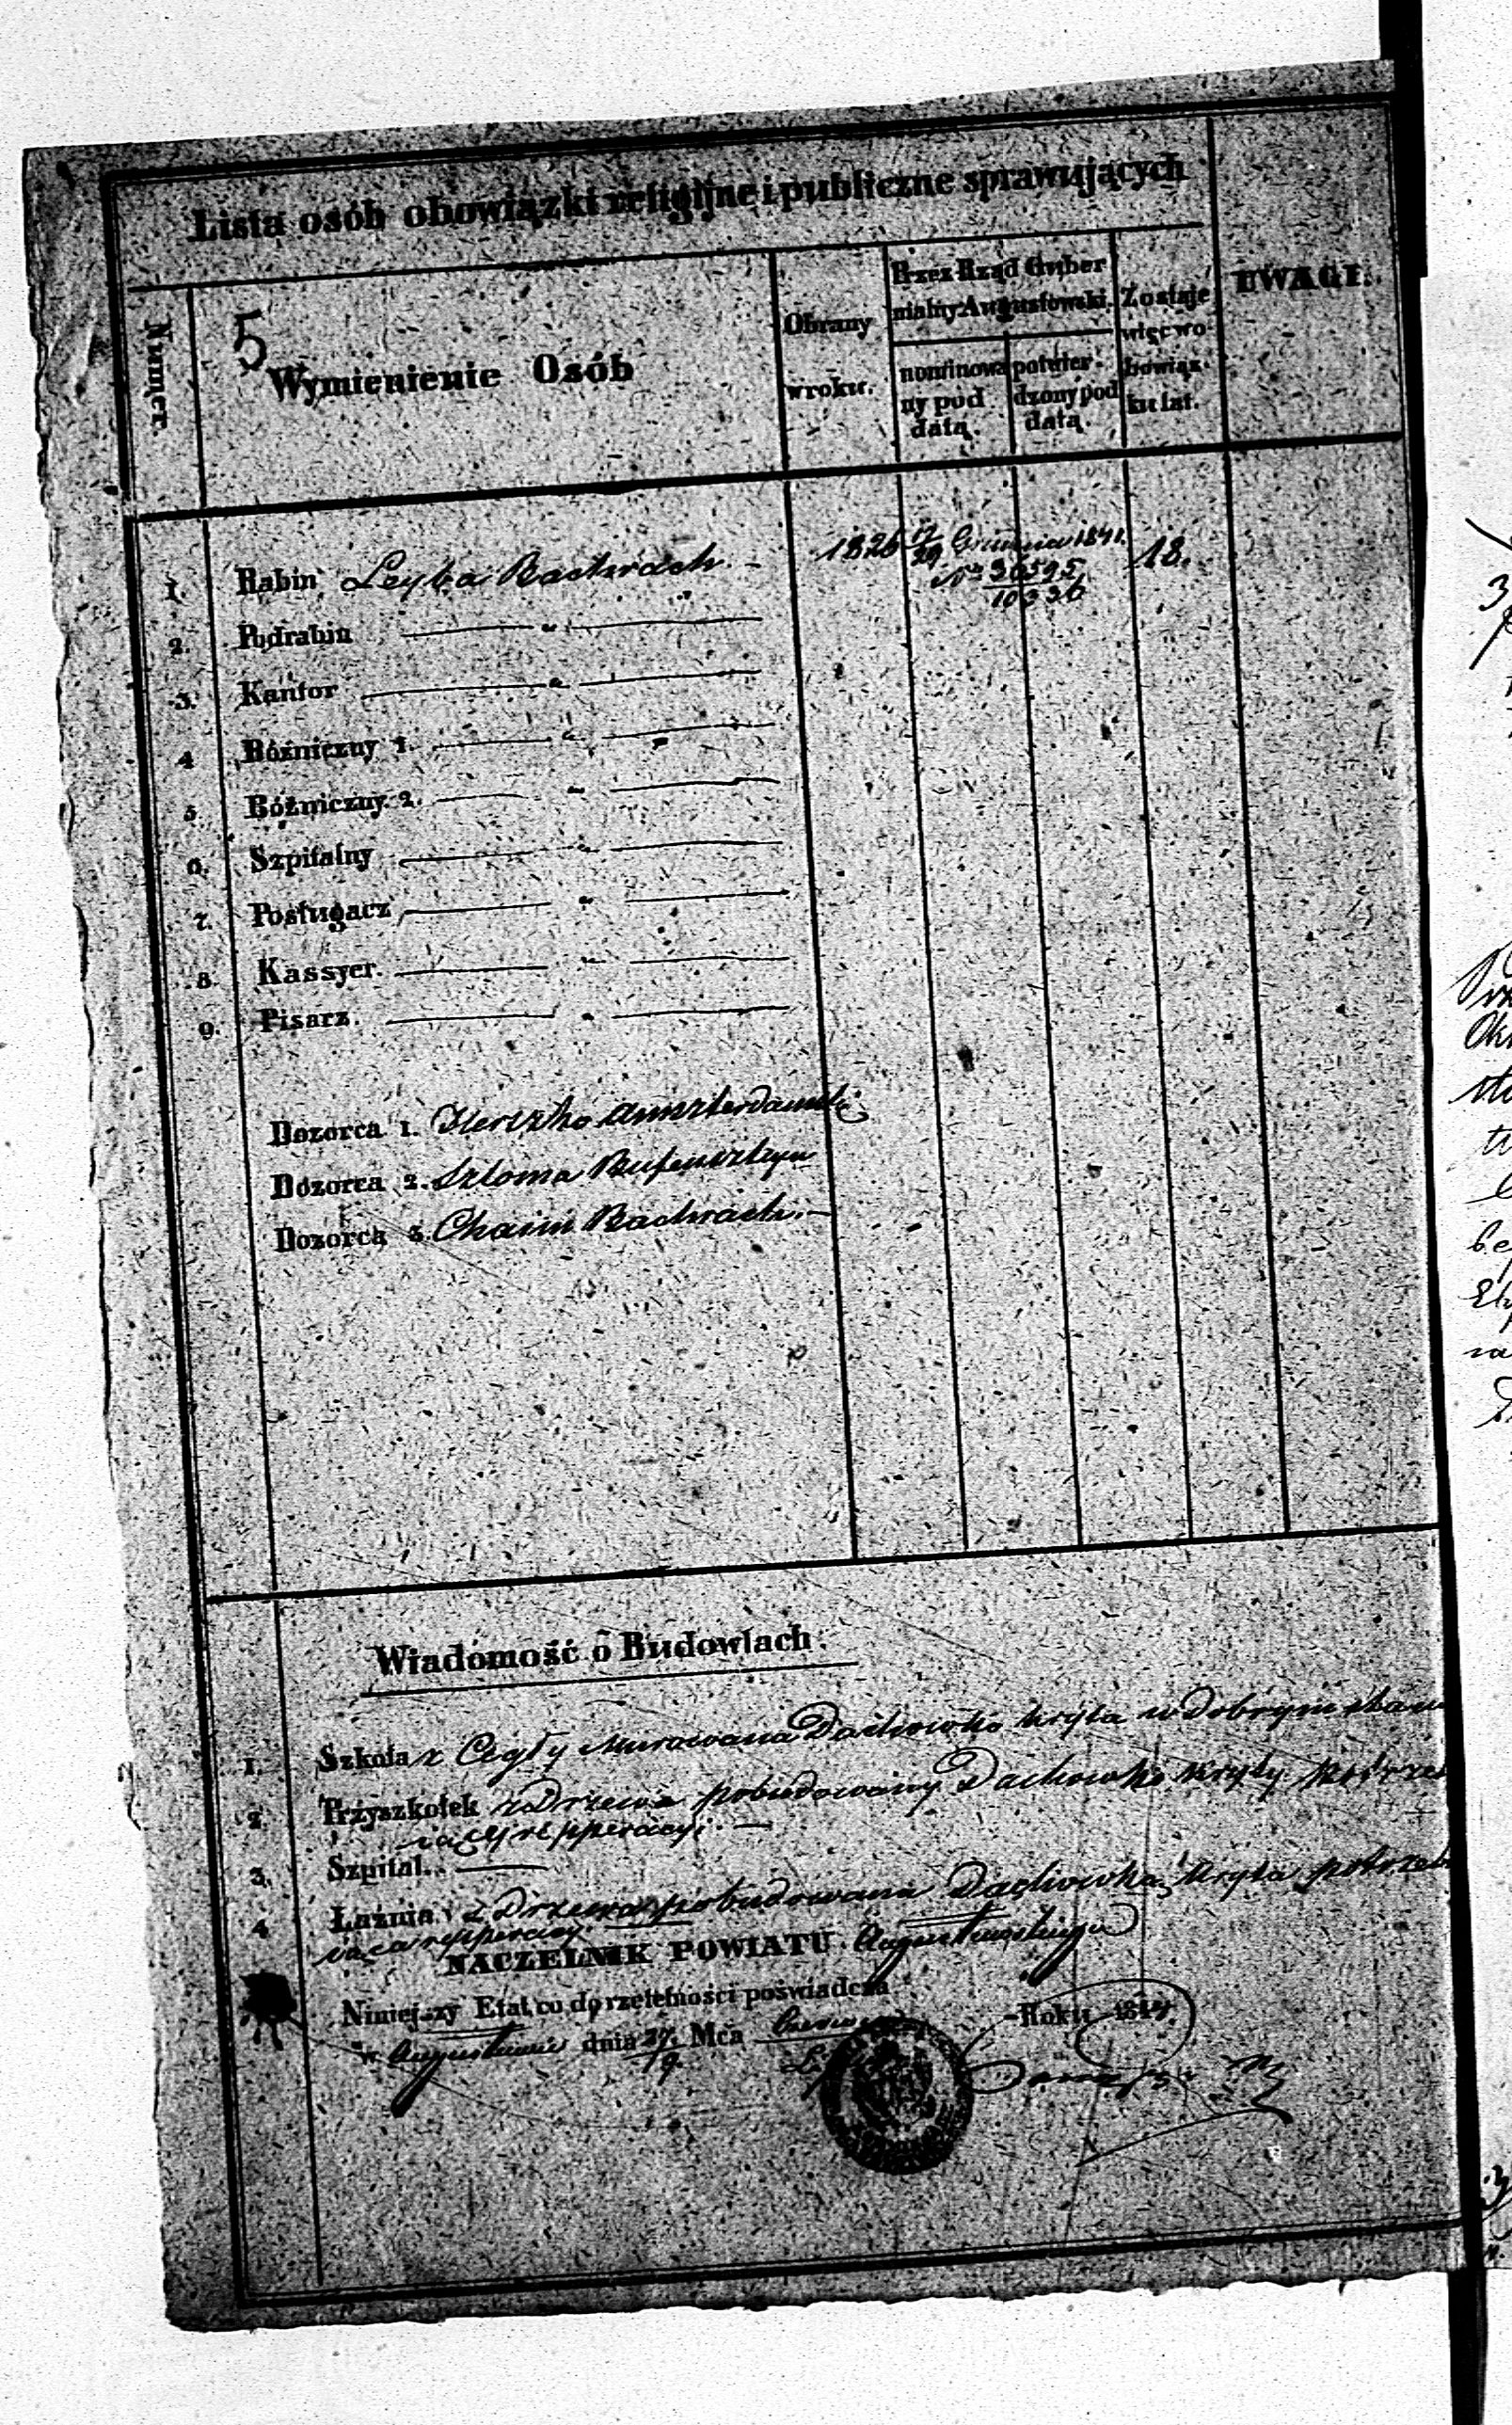 Lista osób obowiązki religijne i publiczne sprawujących
Numer.
5
Wymienienie Osób
Obrany
w roku.
Przez Rząd Guber
nialny Augustowski.
nominowa
ny pod
datą.
potwier-
dzony pod
datą.
Zostaje
więc w o-
bowiąz-
ku lat.
UWAGI.
1. Rabin Leyba Bachrach. 1826 17/29 Grudnia 1841. 18.
No 36595
10336
2. Podrabin — „ —
3. Kantor — „ —
4 Bóźniczny 1. — „ —
5. Bóźniczny 2. — „ —
6. Szpitalny — „ —
7. Posługacz — „ —
8. Kassyer. — „ —
9. Pisarz. — „ —
Dozorca 1. Herszko Amszterdamski
Dozorca 2. Szloma Rufensztejn
Dozorca 3. Chaim Bachrach. —
Wiadomość o Budowlach.
1. Szkoła z Cegły Murowana Dachowką kryta w dobrym stanie
2. Przyszkołek z Drzewa pobudowany Dachowką kryty potrzebu
iący repperacyi. —
3. Szpital. —
4 Łaźnia z Drzewa pobudowana Dachowką kryta potrzebu
iąca repperacyi
NACZELNIK POWIATU Augustowskiego
Niniejszy Etat co do rzetelności poświadcza
w Augustowie dnia Mca Czerwca Roku 1844.